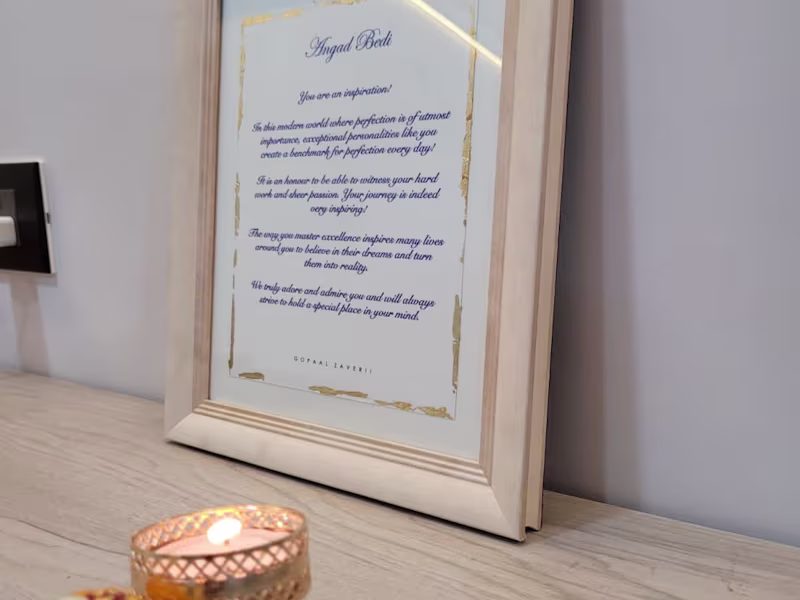 Angad Bedi
You are an inspiration!
In this modern world where perfection is of utmost
importance, exceptional personalities like you
create a benchmark for perfection every day!
It is an honour to be able to witness your hard
work and sheer passion. Your journey is indeed
very inspiring!
The way you master excellence inspires many lives
around you to believe in their dreams and turn
them into reality.
We truly adore and admire you and will always
strive to hold a special place in your mind.
GOPAAL ZAVERII